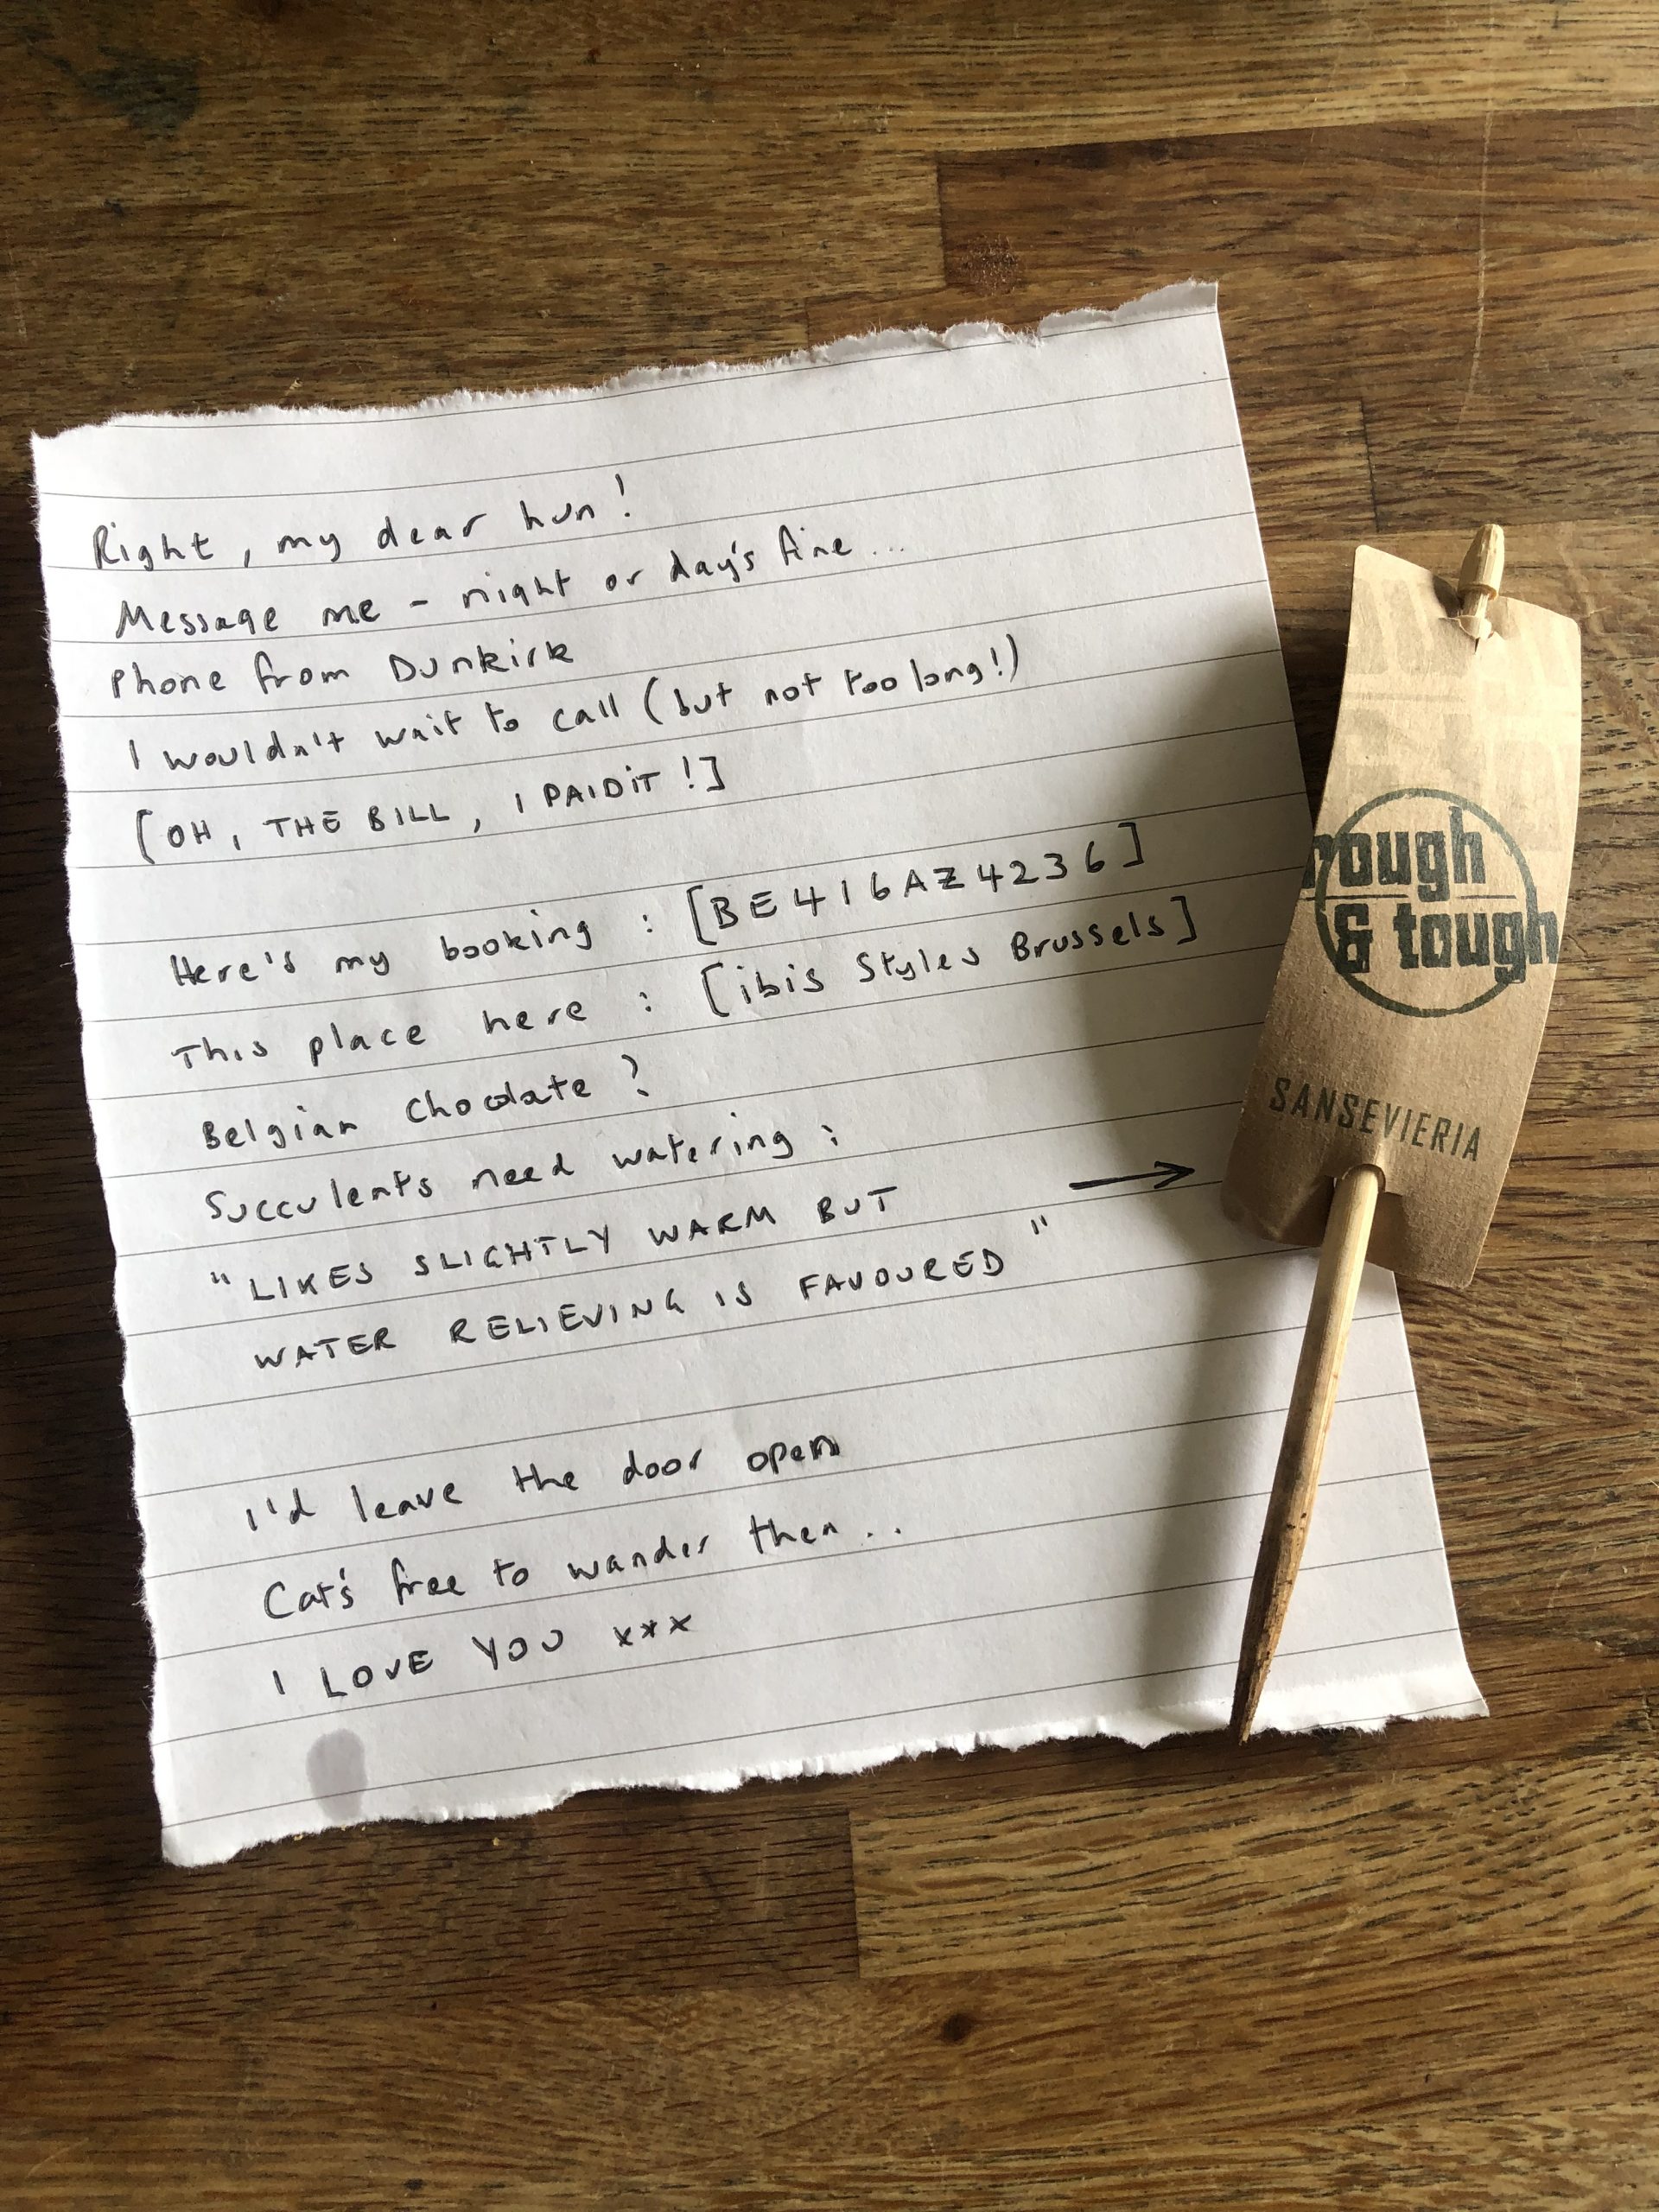 Right, my dear hun!
Message me - night or day's fine...
Phone from Dunkirk
I wouldn't wait to call (but not too long!)
[OH, THE BILL, I PAID IT!]
Here's my booking : [BE416AZ4236]
This place here : [ibis Styles Brussels]
Belgian Chocolate?
Succulents need watering :
"LIKES SLIGHTLY WARM BUT
WATER RELIEVING IS FAVOURED" →
I'd leave the door open
Cat's free to wander then..
I LOVE YOU xxx
rough
& tough
SANSEVIERIA